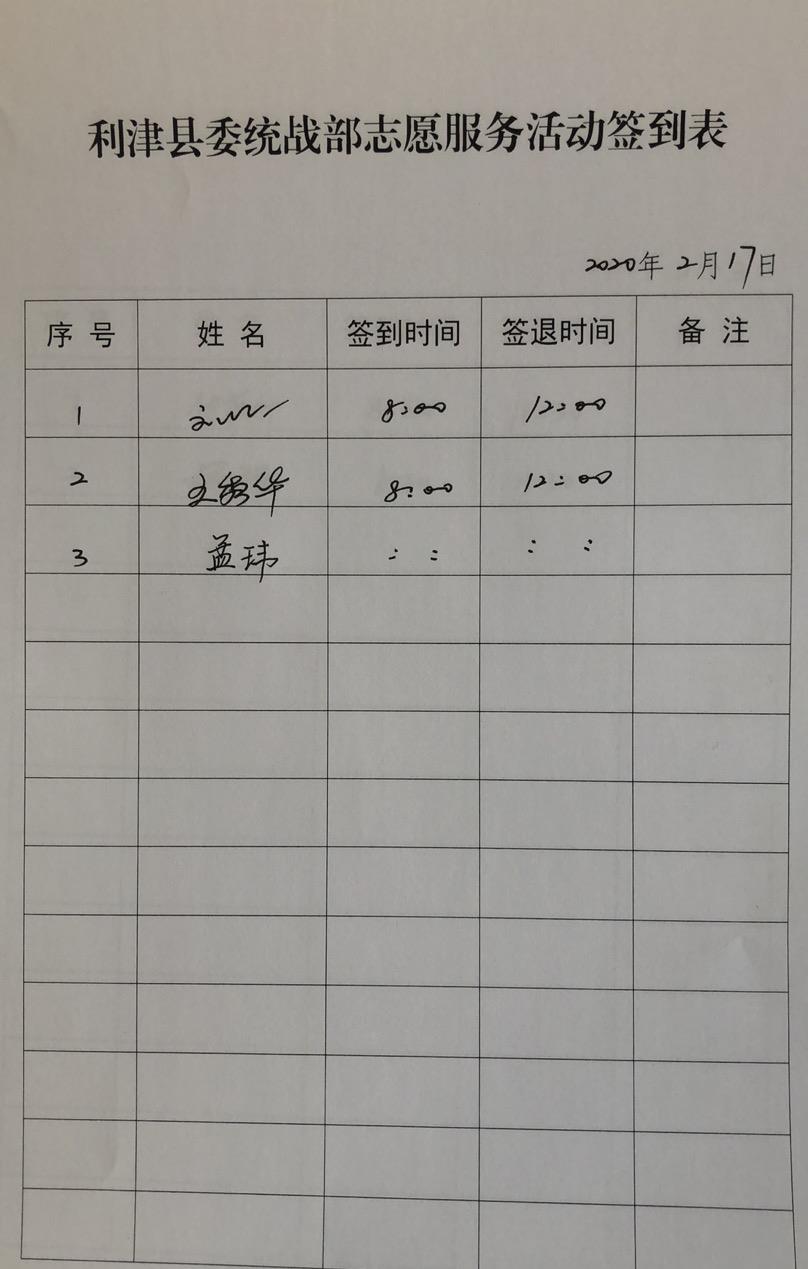 利津县委统战部志愿服务活动签到表
2020年 2月17日
序号 姓名 签到时间 签退时间 备注
1 8:00 12:00
2 王秀华 8:00 12:00
3 孟玮 : : : :